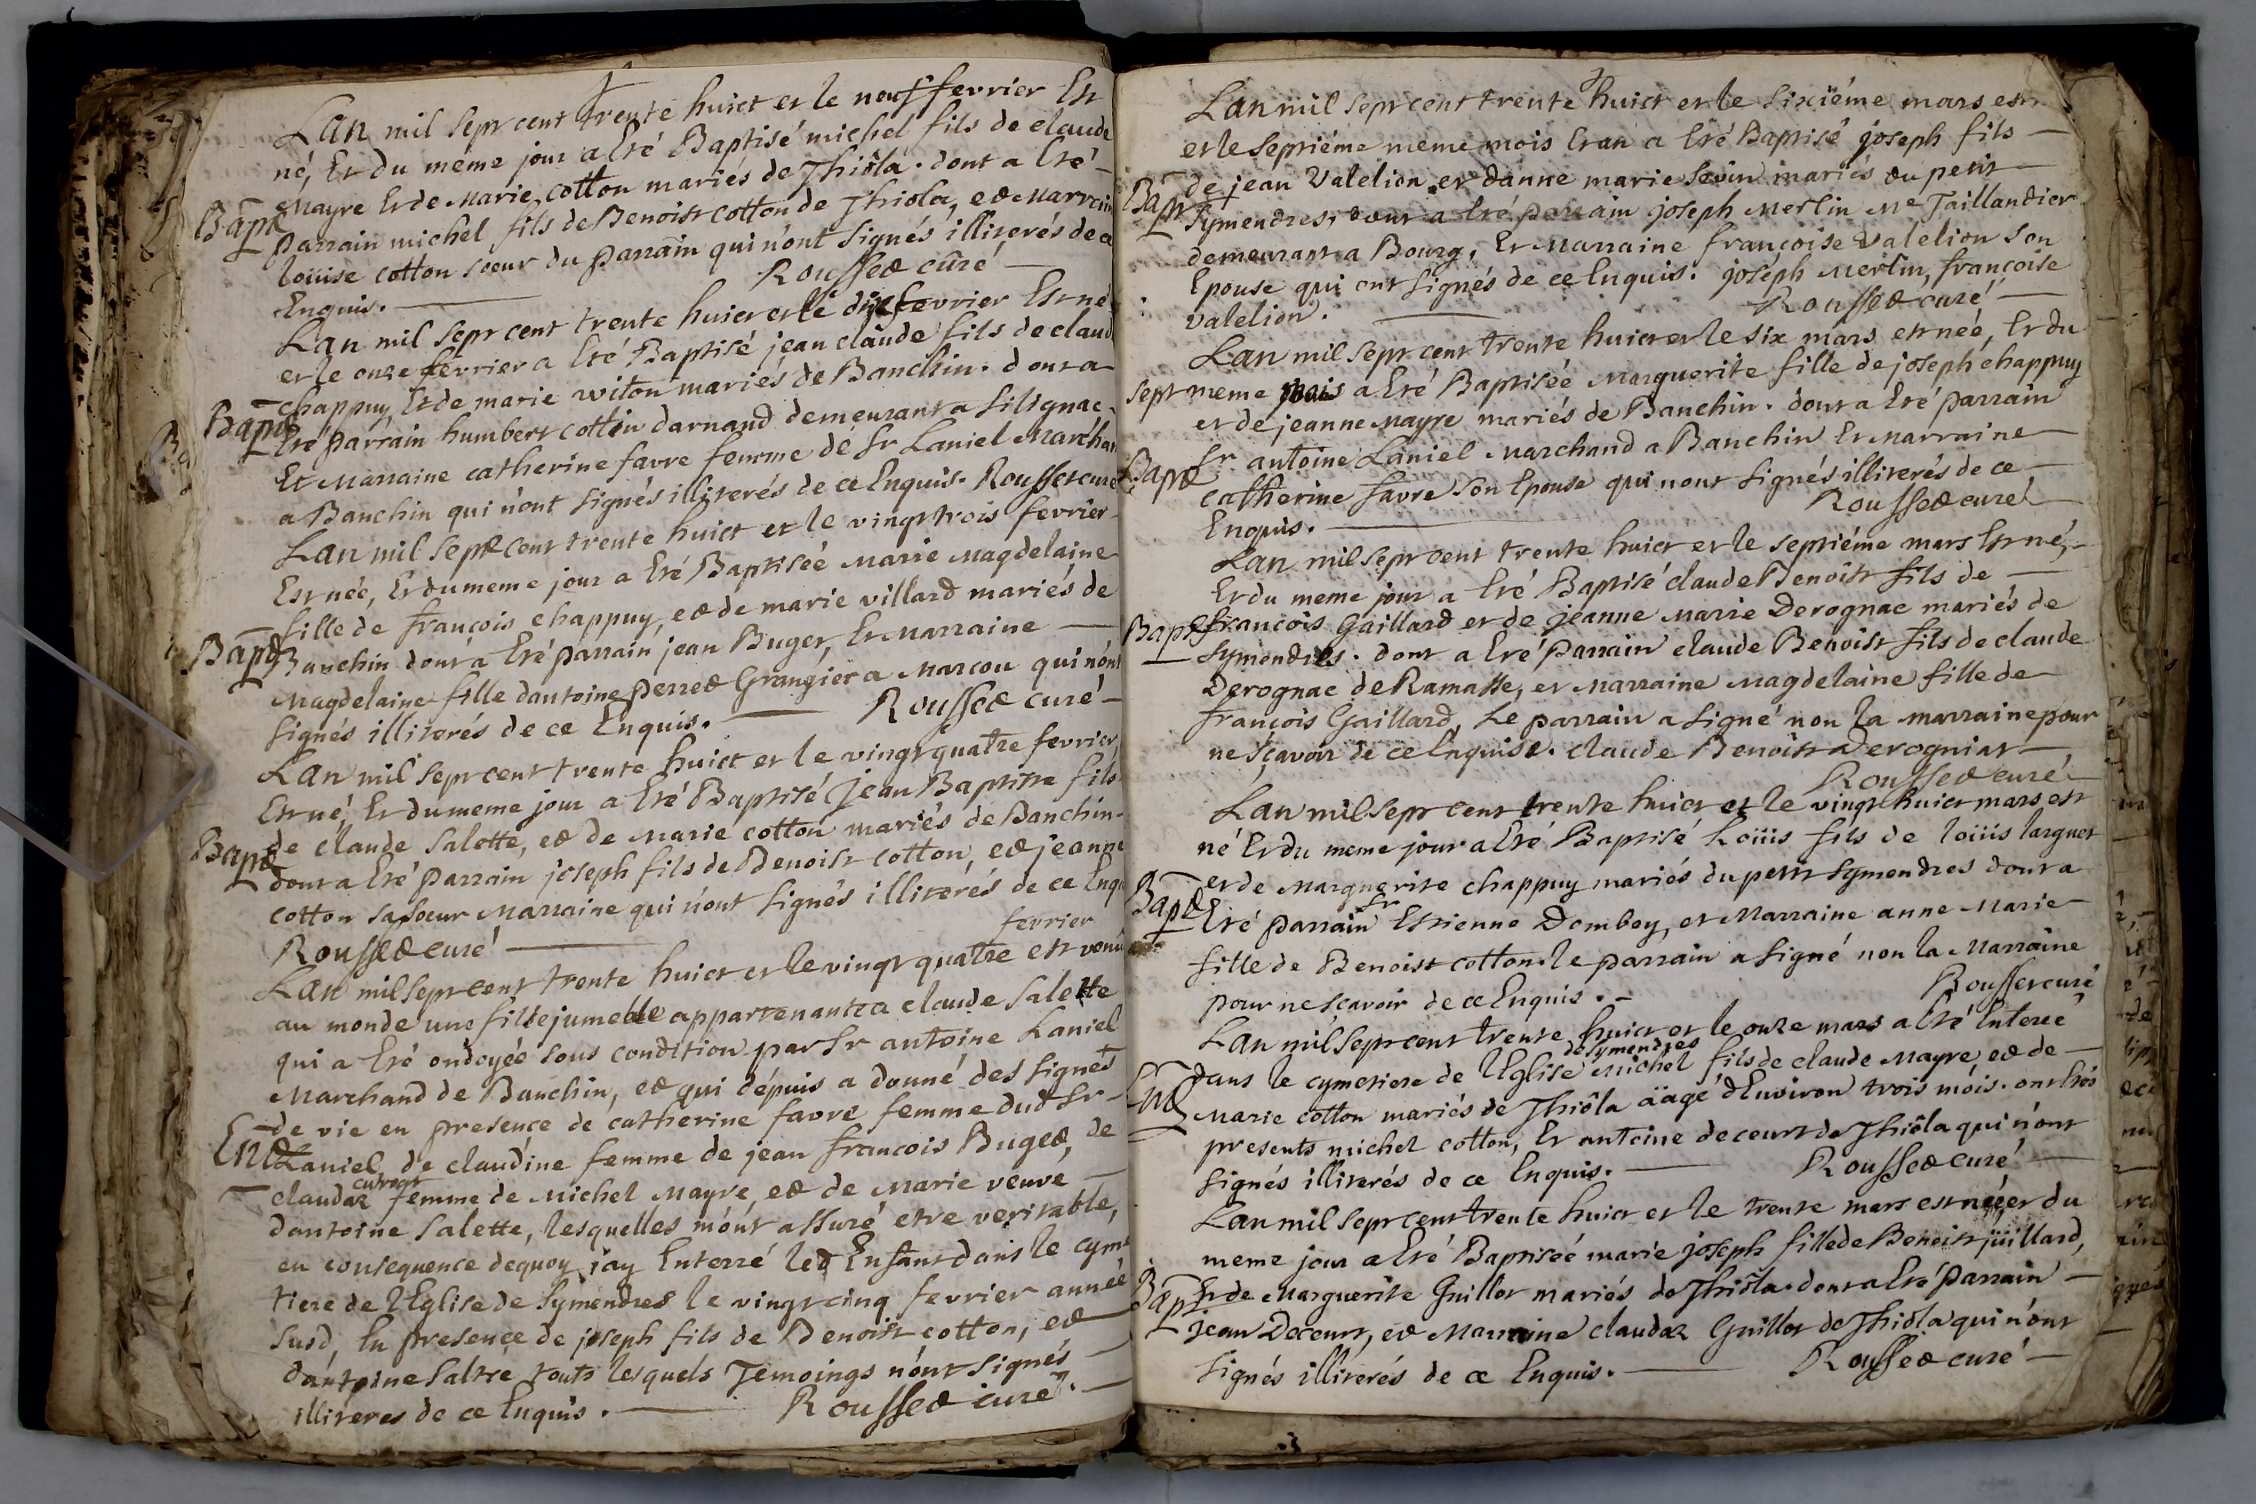 Lan mil sept cent trente huict et le neuf fevrier Est
né, Et du même jour a Eté Baptisé michel fils de claude
Mayre Et de Marie cotton mariés de Thiola. dont a Eté
Bapt parrain michel fils de Benoist cotton de Thiola, et Marraine
loüise cotton soeur du parrain qui n'ont signés illiterés de ce
Enquis. Rousset curé
Lan mil sept cent trente huict et le dix fevrier Est né
et le onze fevrier a Eté Baptisé jean claude fils de claude
chappuy Et de marie witon mariés de Banchin. dont a
Bapt Eté parrain humbert cottin darnand demeurant a silignac
Et Marraine catherine favre femme de sr Laniel Marchan
a Banchin qui n'ont signés illiterés de ce Enquis. Rousset curé
Lan mil sept cent trente huict et le vingt trois fevrier
Est née, Et du meme jour a Eté Baptiseé Marie Magdelaine
fille de francois chappuy, et de marie villard mariés de
Bapt Banchin dont a Eté parrain jean Buget, Et Marraine
Magdelaine fille dantoine perret Grangier a Marcou qui n'ont
signés illiterés de ce Enquis. Rousset curé
Lan mil sept cent trente huict et le vingt quatre fevrier
Est né, Et du meme jour a Eté Baptisé Jean Baptiste fils
de claude Salette, et de Marie cotton mariés de Banchin
Bapt dont a Eté parrain joseph fils de Benoist cotton, et jeanne
cotton sa soeur Marraine qui n'ont signés illiterés de ce Enqu
Rousset curé
fevrier
Lan mil sept cent trente huict et le vingt quatre est venu
au monde une fille jumelle appartenante a claude Salette
qui a Eté ondoyée sous condition par sr antoine Laniel
Marchand de Banchin, et qui dépuis a donné des signes
de vie en presence de catherine favre femme dud sr
Ent Laniel, de claudine femme de jean francois Buget, de
curvat
claudaz femme de Michel Mayre, et de Marie veuve
dantoine Salette, lesquelles m'ont assuré etre veritable,
en consequence dequoy jay Enterré led Enfant dans le cyme
tiere de lEglise de Symendres le vingt cinq fevrier anneé
susd, En presence de joseph fils de Benoist cotton, et
dantoine Saltre touts lesquels Temoings n'ont signés
illiteres de ce Enquis. Rousset curé
Lan mil sept cent trente huict et le sixiéme mars est né
et le septiéme meme mois Et an a Eté Baptisé joseph fils
de jean Valelion et danne marie sevin mariés du petit
Bapt Symendres, dont a Eté parrain joseph Merlin Me Taillandier
demeurant a Bourg, Et Marraine françoise Valelion son
Epouse qui ont signés de ce Enquis. joseph Merlin, françoise
valelion. Rousset curé
Lan mil sept cent trente huict et le six mars est née, Et du
sept meme mois a Eté Baptiseé Marguerite fille de joseph chappuy
et de jeanne Mayre mariés de Banchin. dont a Eté parrain
sr antoine Laniel Marchand a Banchin Et Marraine
Bapt catherine favre son Epouse qui nont signés illiterés de ce
Enquis. Rousset curé
Lan mil sept cent trente huict et le septiéme mars Est né,
Et du meme jour a Eté Baptisé claude Benoist fils de
Bapt francois Gaillard et de jeanne Marie Derognac mariés de
Symendres. dont a Eté parrain claude Benoist fils de claude
Derognac de Ramasse, et Marraine Magdelaine fille de
françois Gaillard, Le parrain a signé non la marraine pour
ne sçavoir de ce Enquise. claude Benoist Derogniat
Rousset curé
Lan mil sept cent trente huict et le vingt huict mars est
né Et du meme jour a Eté Baptisé Loüis fils de loüis larguet
et de Marguerite chappuy mariés du petit Symendres dont a
sr
Bapt Eté parrain Estienne Dombey, et Marraine anne Marie
fille de Benoist cotton. le parrain a signé non la Marraine
pour ne sçavoir de ce Enquis. Rousset curé
Lan mil sept cent trente huict et le onze mars a Eté Enterré
de Symendres
dans le cymetiere de lEglise Michel fils de claude Mayre et de
Ent Marie cotton mariés de Thiôla äagé dEnviron trois mois. ont Etés
presents michel cotton, Et antoine decourt de Thiôla qui n'ont
signés illiterés de ce Enquis. Rousset curé
Lan mil sept cent trente huict et le trente mars est née, et du
meme jour a Eté Baptiseé marie joseph fille de Benoist jüillard,
Bapt Et de Marguerite Guillot mariés de Thiôla. dont a Eté parrain
jean Decourt, et Marraine claudaz Guillot de Thiola qui n'ont
signés illiterés de ce Enquis. Rousset curé